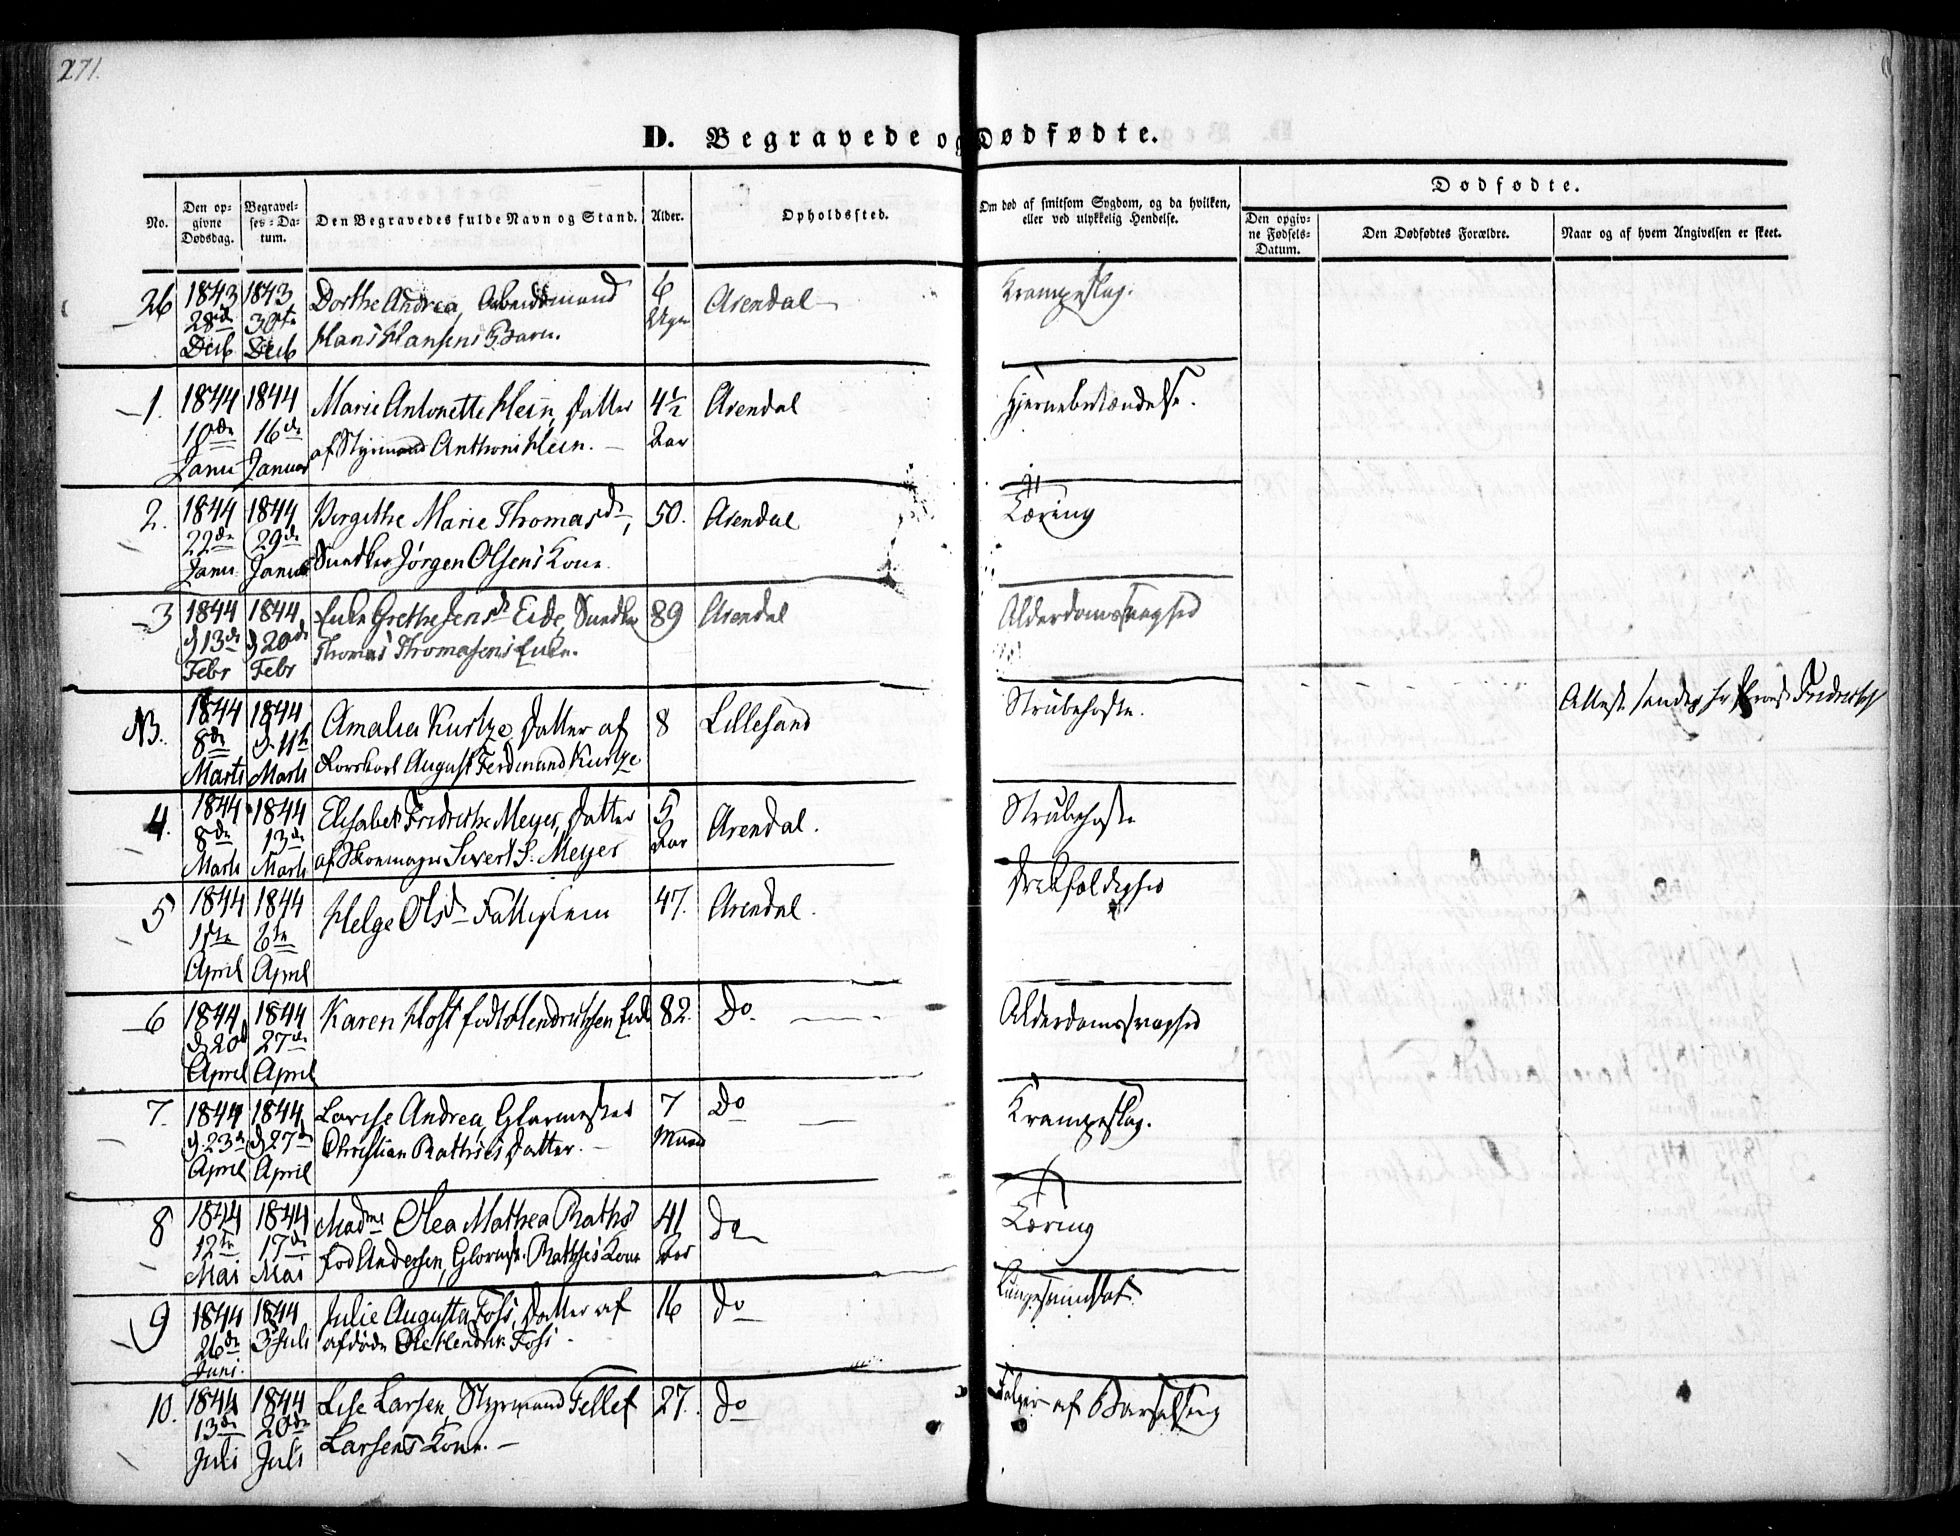 271.
D. Begravede og Dødfødte.
No.
Den opgivne Dødsdag.
Begravelses-Datum.
Den Begravedes fulde Navn og Stand.
Alder.
Opholdssted.
Om død af smitsom Sygdom, og da hvilken, eller ved ulykkelig Hendelse.
Dødfødte.
Den opgivne Fødsels-Datum.
Den Dødfødtes Forældre.
Naar og af hvem Angivelsen er skeet.
26 1843 28de Decb 1843 30te Decb Dorthe Andrea, Arbeidsmand 6 Uger Arendal Krampeslag.
Hans Hansens Barn.
1. 1844 10de Janu 1844 16de Januar Marie Antonette Klein, Datter 4½ Aar Arendal Hjernebetændelse.
af Styrmand Anthoni Klein.
2. 1844 22de Janu 1844 29de Janua Birgithe Marie Thomasd, 50. Arendal Tæring
Jørgen Olsens Kone
3 1844 d 13de Febr 1844 d 20de Febr Enke Grethe Jensd Eide, 89 Arendal Alderdomssvaghed
Thomas Thomasens Enke.
N3. 1844 8de Marts 1844 d. 11te Marts Amalia Kurtze, Datter af 8 Lillesand Strubehoste. Attest
August Ferdinand Kurtze
4. 1844 8de Marts 1844 13de Marts Elisabet Fredrikke Meyer, Datter 5 Aar Arendal. Strubehoste
af Skomager Sivert S. Meyer
5 1844 1ste April 1844 6te April Helge Olsd Fattiglem 47. Arendal.
6 1844 d 20d April 1844 27de April Karen Holst født Hendrichsen Enke 82. Do. Alderdomssvaghed
7. 1844 d. 23de April 1844 d 27de April Lovise Andrea, Glarmester 7 Maan Do Krampeslag.
Christian Rathjes Datter.
8 1844 12te Mai 1844 17de Mai Madme Olea Mathea Rathjs 41 Aar Do Tæring
fød Andersen, Glarmst. Rathjes Kone
9 1844 26de Juni. 1844 3 Juli Julie Augusta Foss, Datter af 16 Do
afdøde Ole Hendrik Foss.
10. 1844 13de Juli 1844 20de Juli Lise Larsen, Styrmand Tellef 27. Do Følger af Barselseng
Larsens Kone.